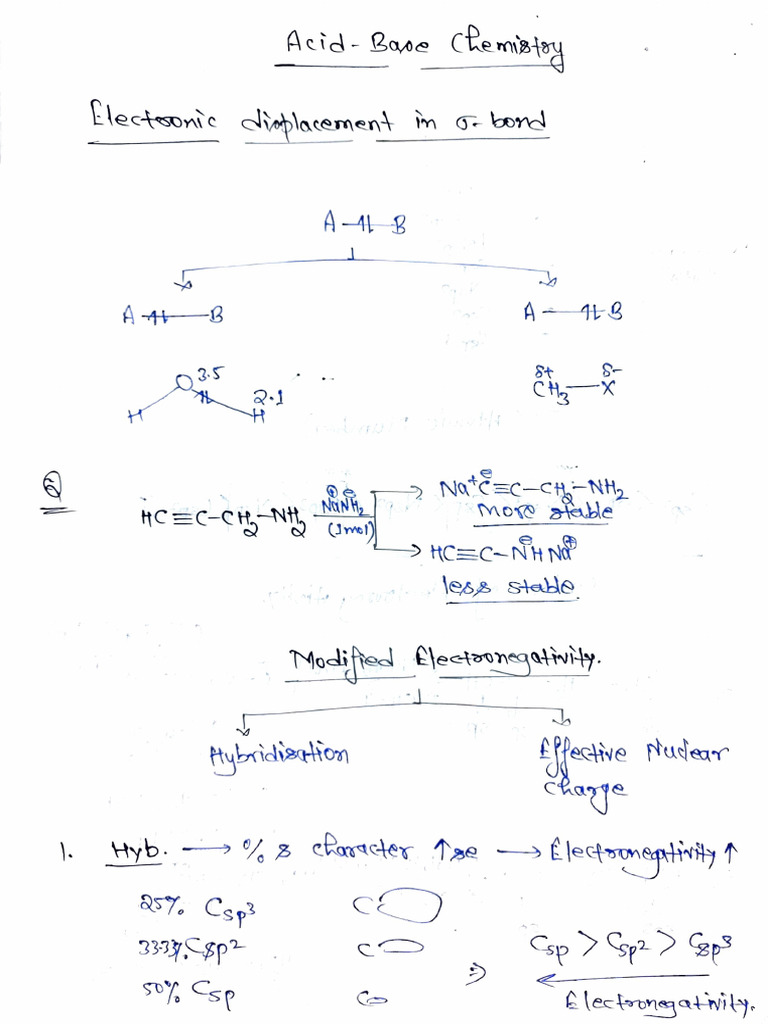 Acid-Base Chemistry
Electronic displacement in σ-bond
A-⇅-B
A-⇅—B A—⇅-B
O 3.5 H ⇅ 2.1 H
δ+ δ-
CH₃—X
Q
HC≡C-CH₂-NH₂ ⊕ ⊖ NaNH₂ (1mol)
Na⁺C⊖≡C-CH₂-NH₂
more stable
HC≡C-N⊖H Na⊕
less stable
Modified Electronegativity.
Hybridisation Effective Nuclear charge
1. Hyb. → % s character ↑se → Electronegativity ↑
25% Csp³ C
33.33% Csp² C ⇒ Csp > Csp² > Csp³
50% Csp C Electronegativity.